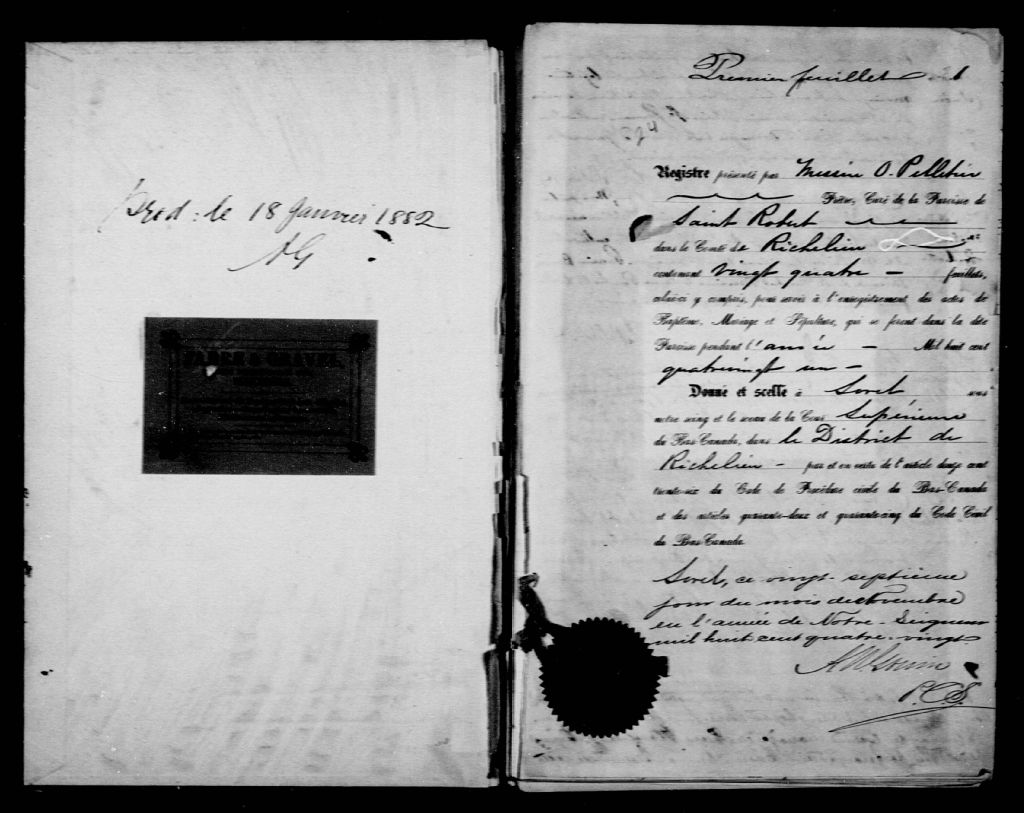 Prod: le 18 Janvier 1882
AG
FABRE & GRAVEL
Premier feuillet 1
Registre présenté par Messire O. Pelletier
Prêtre, Curé de la Paroisse de
Saint Robert
dans le Comté de Richelieu
contenant vingt quatre – feuillets,
celui-ci y compris, pour servir à l'enregistrement des actes de
Baptême, Mariage et Sépulture, qui se feront dans la dite
Paroisse pendant l'année – Mil huit cent
quatrevingt un –
Donné et scellé à Sorel sous
notre seing et le sceau de la Cour Supérieure
du Bas-Canada, dans le District de
Richelieu – par et en vertu de l'article douze cent
trente-six du Code de Procédure civile du Bas-Canada
et des articles quarante-deux et quarante-cinq du Code Civil
du Bas-Canada.
Sorel, ce vingt-septième
jour du mois de Novembre
en l'année de Notre-Seigneur
mil huit cent quatre-vingt
P.C.S.